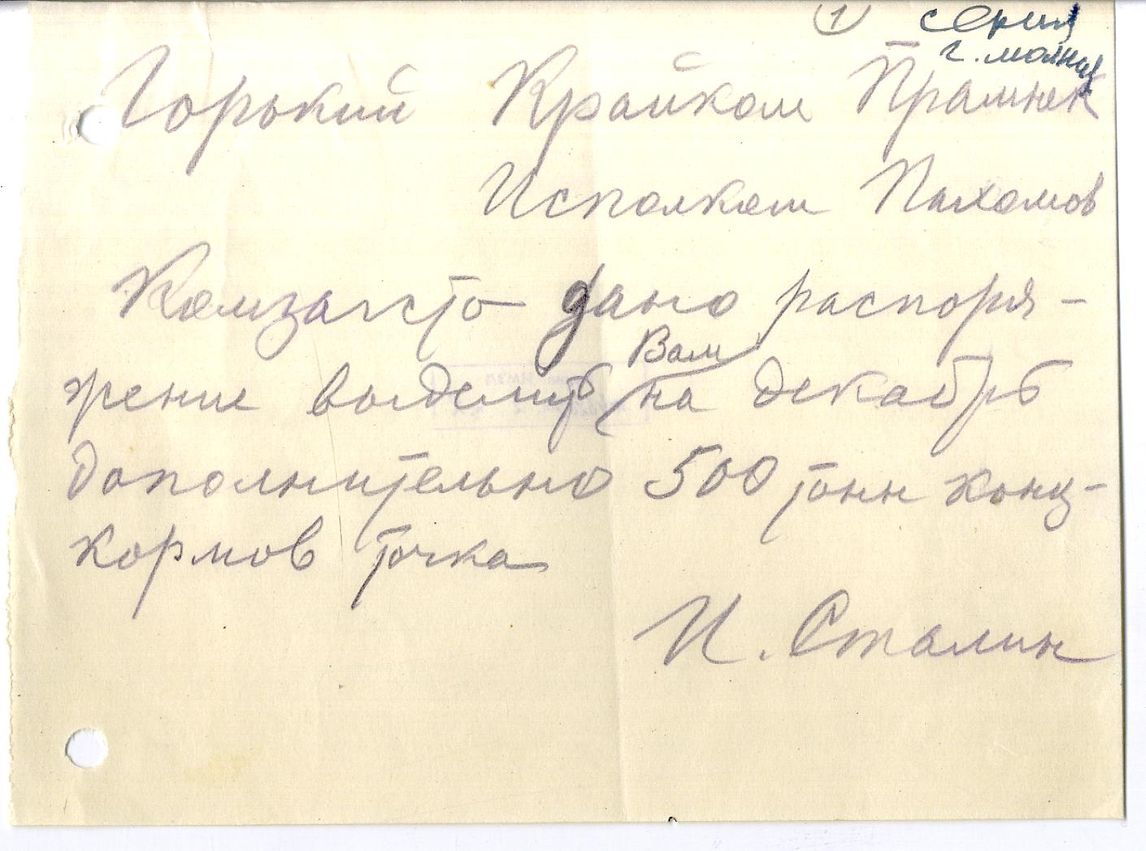 1 серия
г. молния
Горький Крайком Прамнек
Исполком Пахомов
Комзагсто дано распоря-
жение выделить Вам на декабрь
дополнительно 500 тонн конц-
кормов точка
И. Сталин